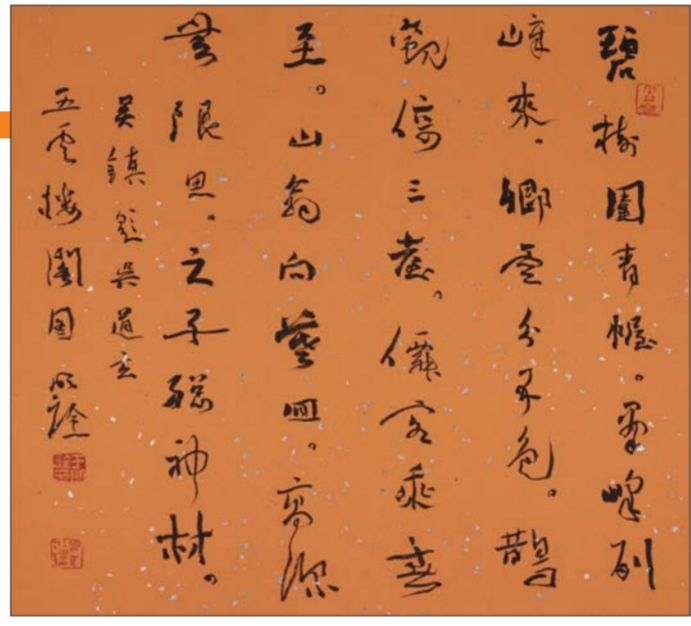 碧樹圍青幄。羣峰列
嶂來。卿雲分五色。鵲
觀倚三臺。僊客乘
至。山翁向回。高深
無限思。之子神材。
吳鎮題吳道玄
五雲樓閣圖 明詮